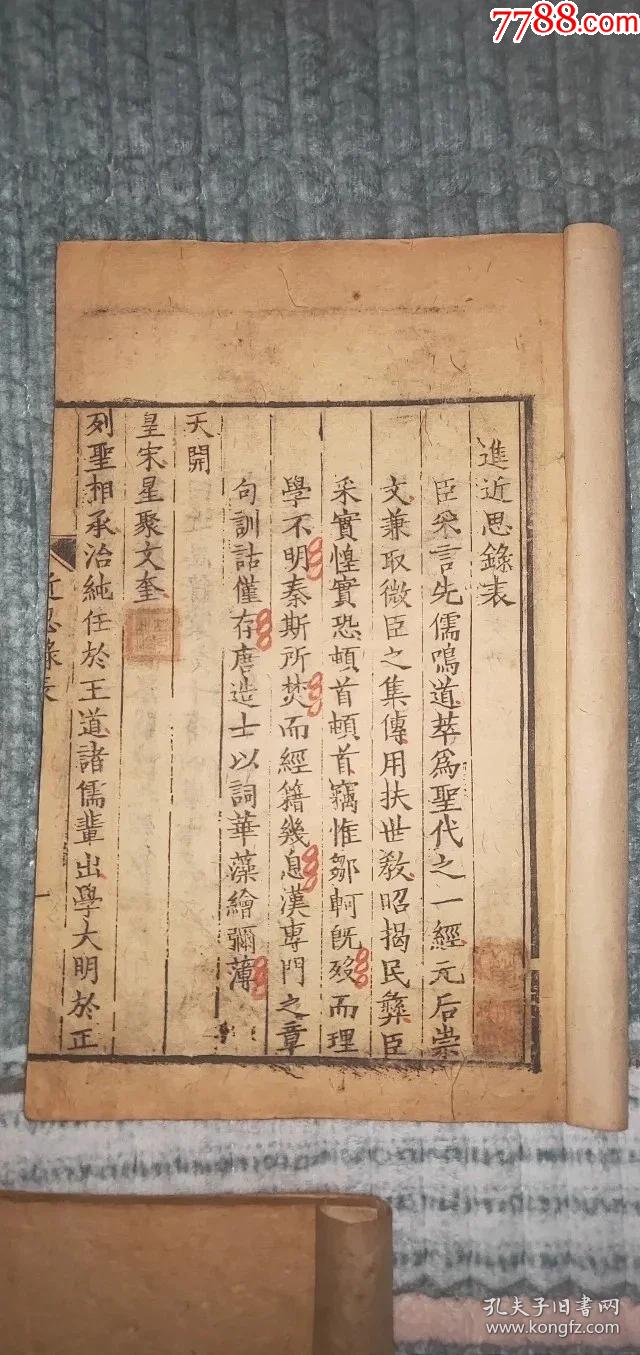 7788.com
進近思錄表
臣采言先儒鳴道萃爲聖代之一經元后崇
文兼取微臣之集傳用扶世教昭揭民彝臣
采實惶實恐頓首頓首竊惟鄒軻旣歿而理
學不明秦斯所焚而經籍幾息漢專門之章
句訓詁僅存唐造士以詞華藻繪彌薄
天開
皇宋星聚文奎
列聖相承治純任於王道諸儒輩出學大明於正
近思錄表
一
孔夫子旧書网
www.kongfz.com